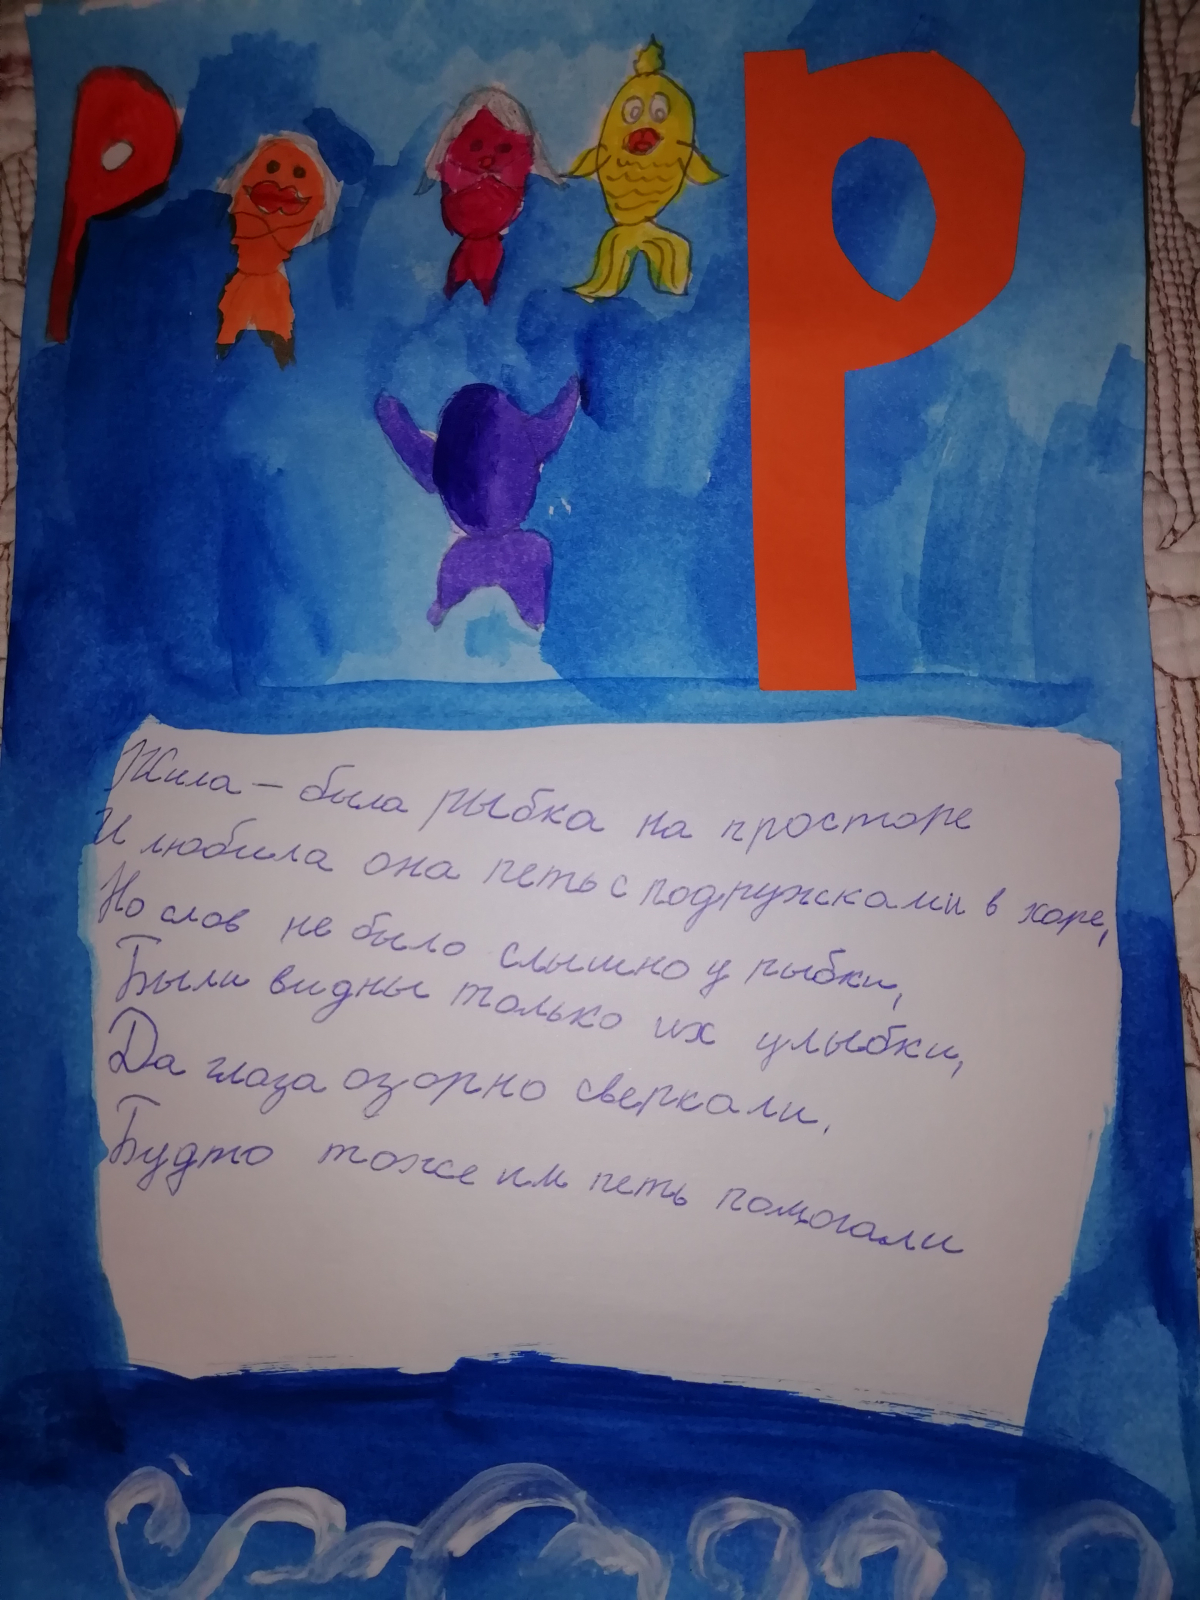 Р Р
Жила - была рыбка на просторе
И любила она петь с подружками в хоре,
Но слов не было слышно у рыбки,
Были видны только их улыбки,
Да глаза озорно сверкали,
Будто тоже им петь помогали